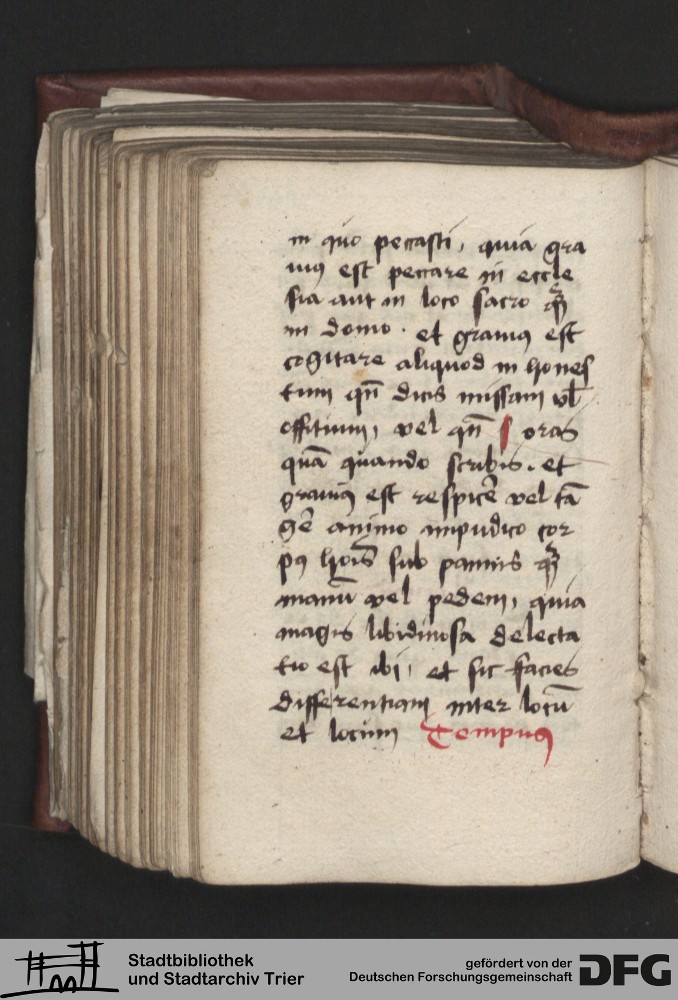 in quo peccasti, quia gra
uius est peccare in eccle
sia aut in loco sacro qȝ
in domo. et grauius est
cogitare aliquod in hones
tum qn̄ dicis missam vel
offitium, vel qn̄ oras
quā quando scribis. et
grauius est respicē vel tā
gē animo impudico cor
pꝯ hoīs sub pannis qȝ
manū vel pedem, quia
magis libidinosa delecta
tio est ibi, et sic facies
differentiam inter locū
et locum Tempus
Stadtbibliothek
und Stadtarchiv Trier
gefördert von der
Deutschen Forschungsgemeinschaft
DFG